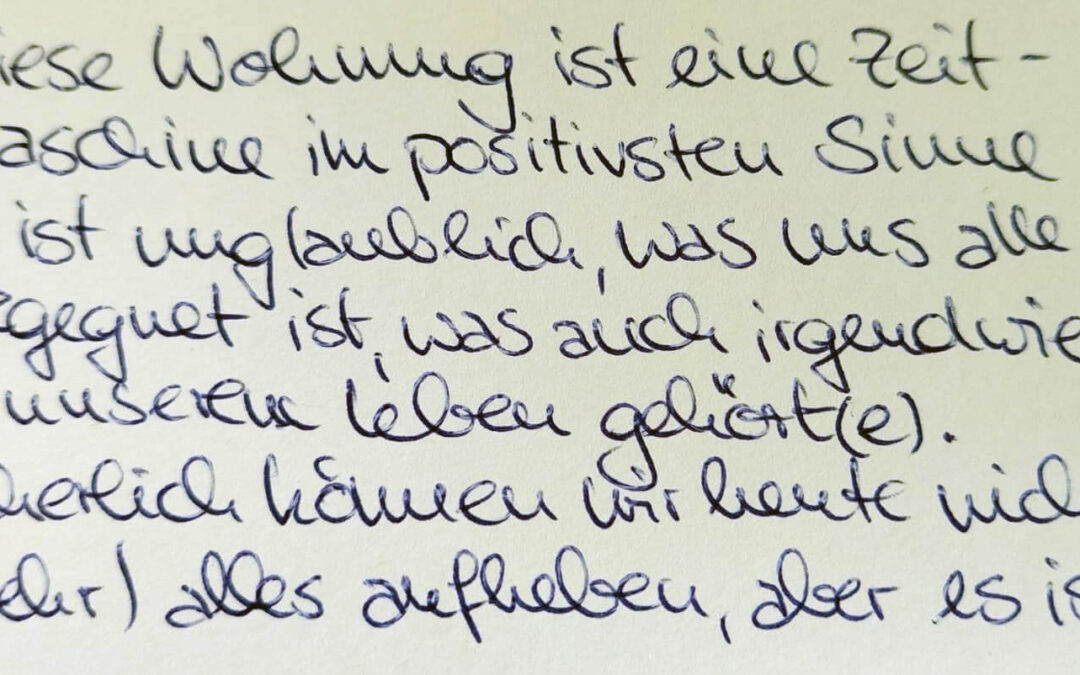 iese Wohnung ist eine Zeit-
aschine im positivsten Sinne
ist unglaublich, was uns alle
egegnet ist, was auch irgendwie
unserem Leben gehört(e).
herlich können wir heute nich
ehr) alles aufheben, aber es is